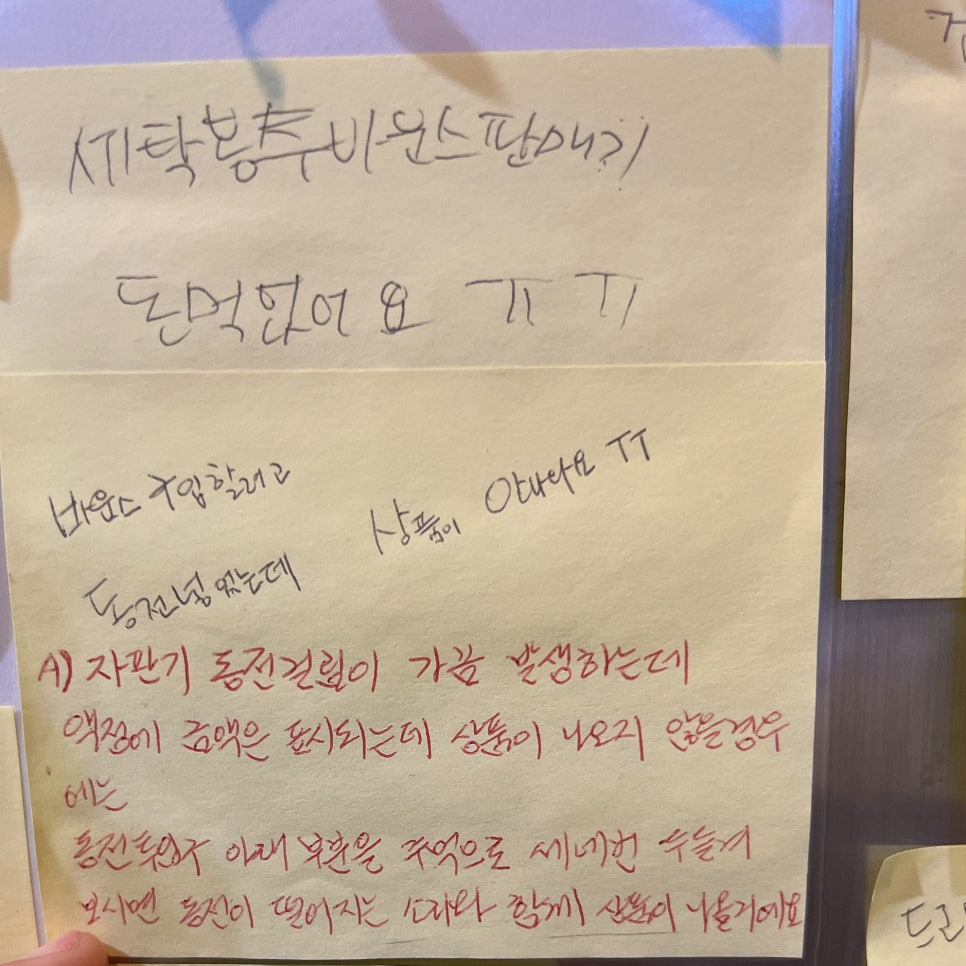 세탁봉투바운스판매기
돈먹없어요 ㅠㅠ
바운스 구입할려고
동전넣었는데
상품이 안나와요 ㅠㅠ
A) 자판기 동전걸림이 가끔 발생하는데
액정에 금액은 표시되는데 상품이 나오지 않을경우
에는
동전투입구 아래 부분을 주먹으로 세네번 두들겨
보시면 동전이 떨어지는 소리와 함께 상품이 나올거에요